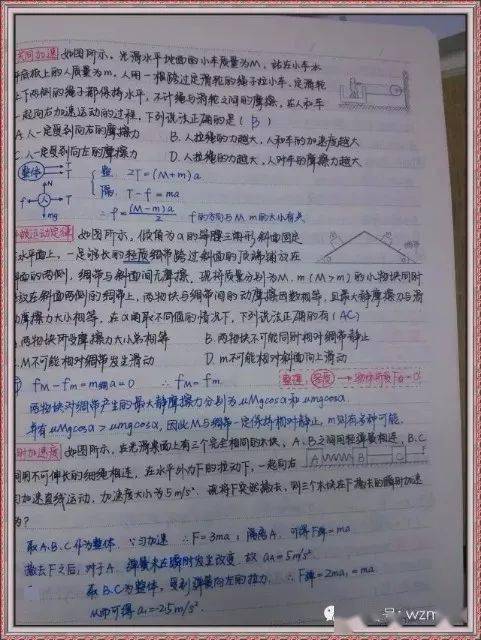 共同加速 如图所示，光滑水平地面的小车质量为M，站在小车水
平底板上的人质量为m，人用一根跨过定滑轮的绳子拉小车，定滑轮
上下两侧的绳子都保持水平，不计绳与滑轮之间的摩擦，在人和车
一起向右加速运动的过程，下列说法正确的是（B）
A.人一定受到向右的摩擦力 B.人拉绳的力越大，人和车的加速度越大
C.人一定受到向左的摩擦力 D.人拉绳的力越大，人对车的摩擦力越大
整体 T T
整 2T=(M+m)a
隔 T-f=ma
N f 人 T mg
∴f=(M-m)a/2 f的方向与M、m的大小有关
运动定律 如图所示，倾角为α的等腰三角形斜面固定
水平面上，一足够长的轻质绸带跨过斜面的顶端铺放在
斜面的两侧，绸带与斜面间无摩擦，现将质量分别为M、m(M>m)的小物块同时
放在斜面两侧的绸带上，两物块与绸带间的动摩擦因数相等，且最大静摩擦力与滑
动摩擦力大小相等，在α角取不同值的情况下，下列说法正确的有（AC）
A.两物块所受摩擦力大小总相等 B.两物块不可能同时相对绸带静止
C.M不可能相对绸带发生滑动 D.m不可能相对斜面向上滑动
fM-fm=m绸a=0 ∴fM=fm
两物块对绸带产生的最大静摩擦力分别为μMgcosα和μmgcosα
并有μMgcosα>μmgcosα，因此M与绸带一定保持相对静止，m则有多种可能.
瞬时加速度 如图所示，在光滑桌面上有三个完全相同的木块，A、B之间用轻弹簧相连，B、C
间用不可伸长的细绳相连，在水平外力F的拉动下，一起向右
A B C
匀加速直线运动，加速度大小为5m/s²，该将F突然撤去，则三个木块在F撤去的瞬时加速
为?
取A.B.C作为整体，∵匀加速 ∴F=3ma；隔离A，可得F弹=ma
撤去F之后，对于A，弹簧未在瞬时发生改变，故aA=5m/s²
取B、C为整体，受到弹簧向左的拉力，∴F弹=2ma₁=ma
从而可得a₁=2.5m/s²
号：wzn